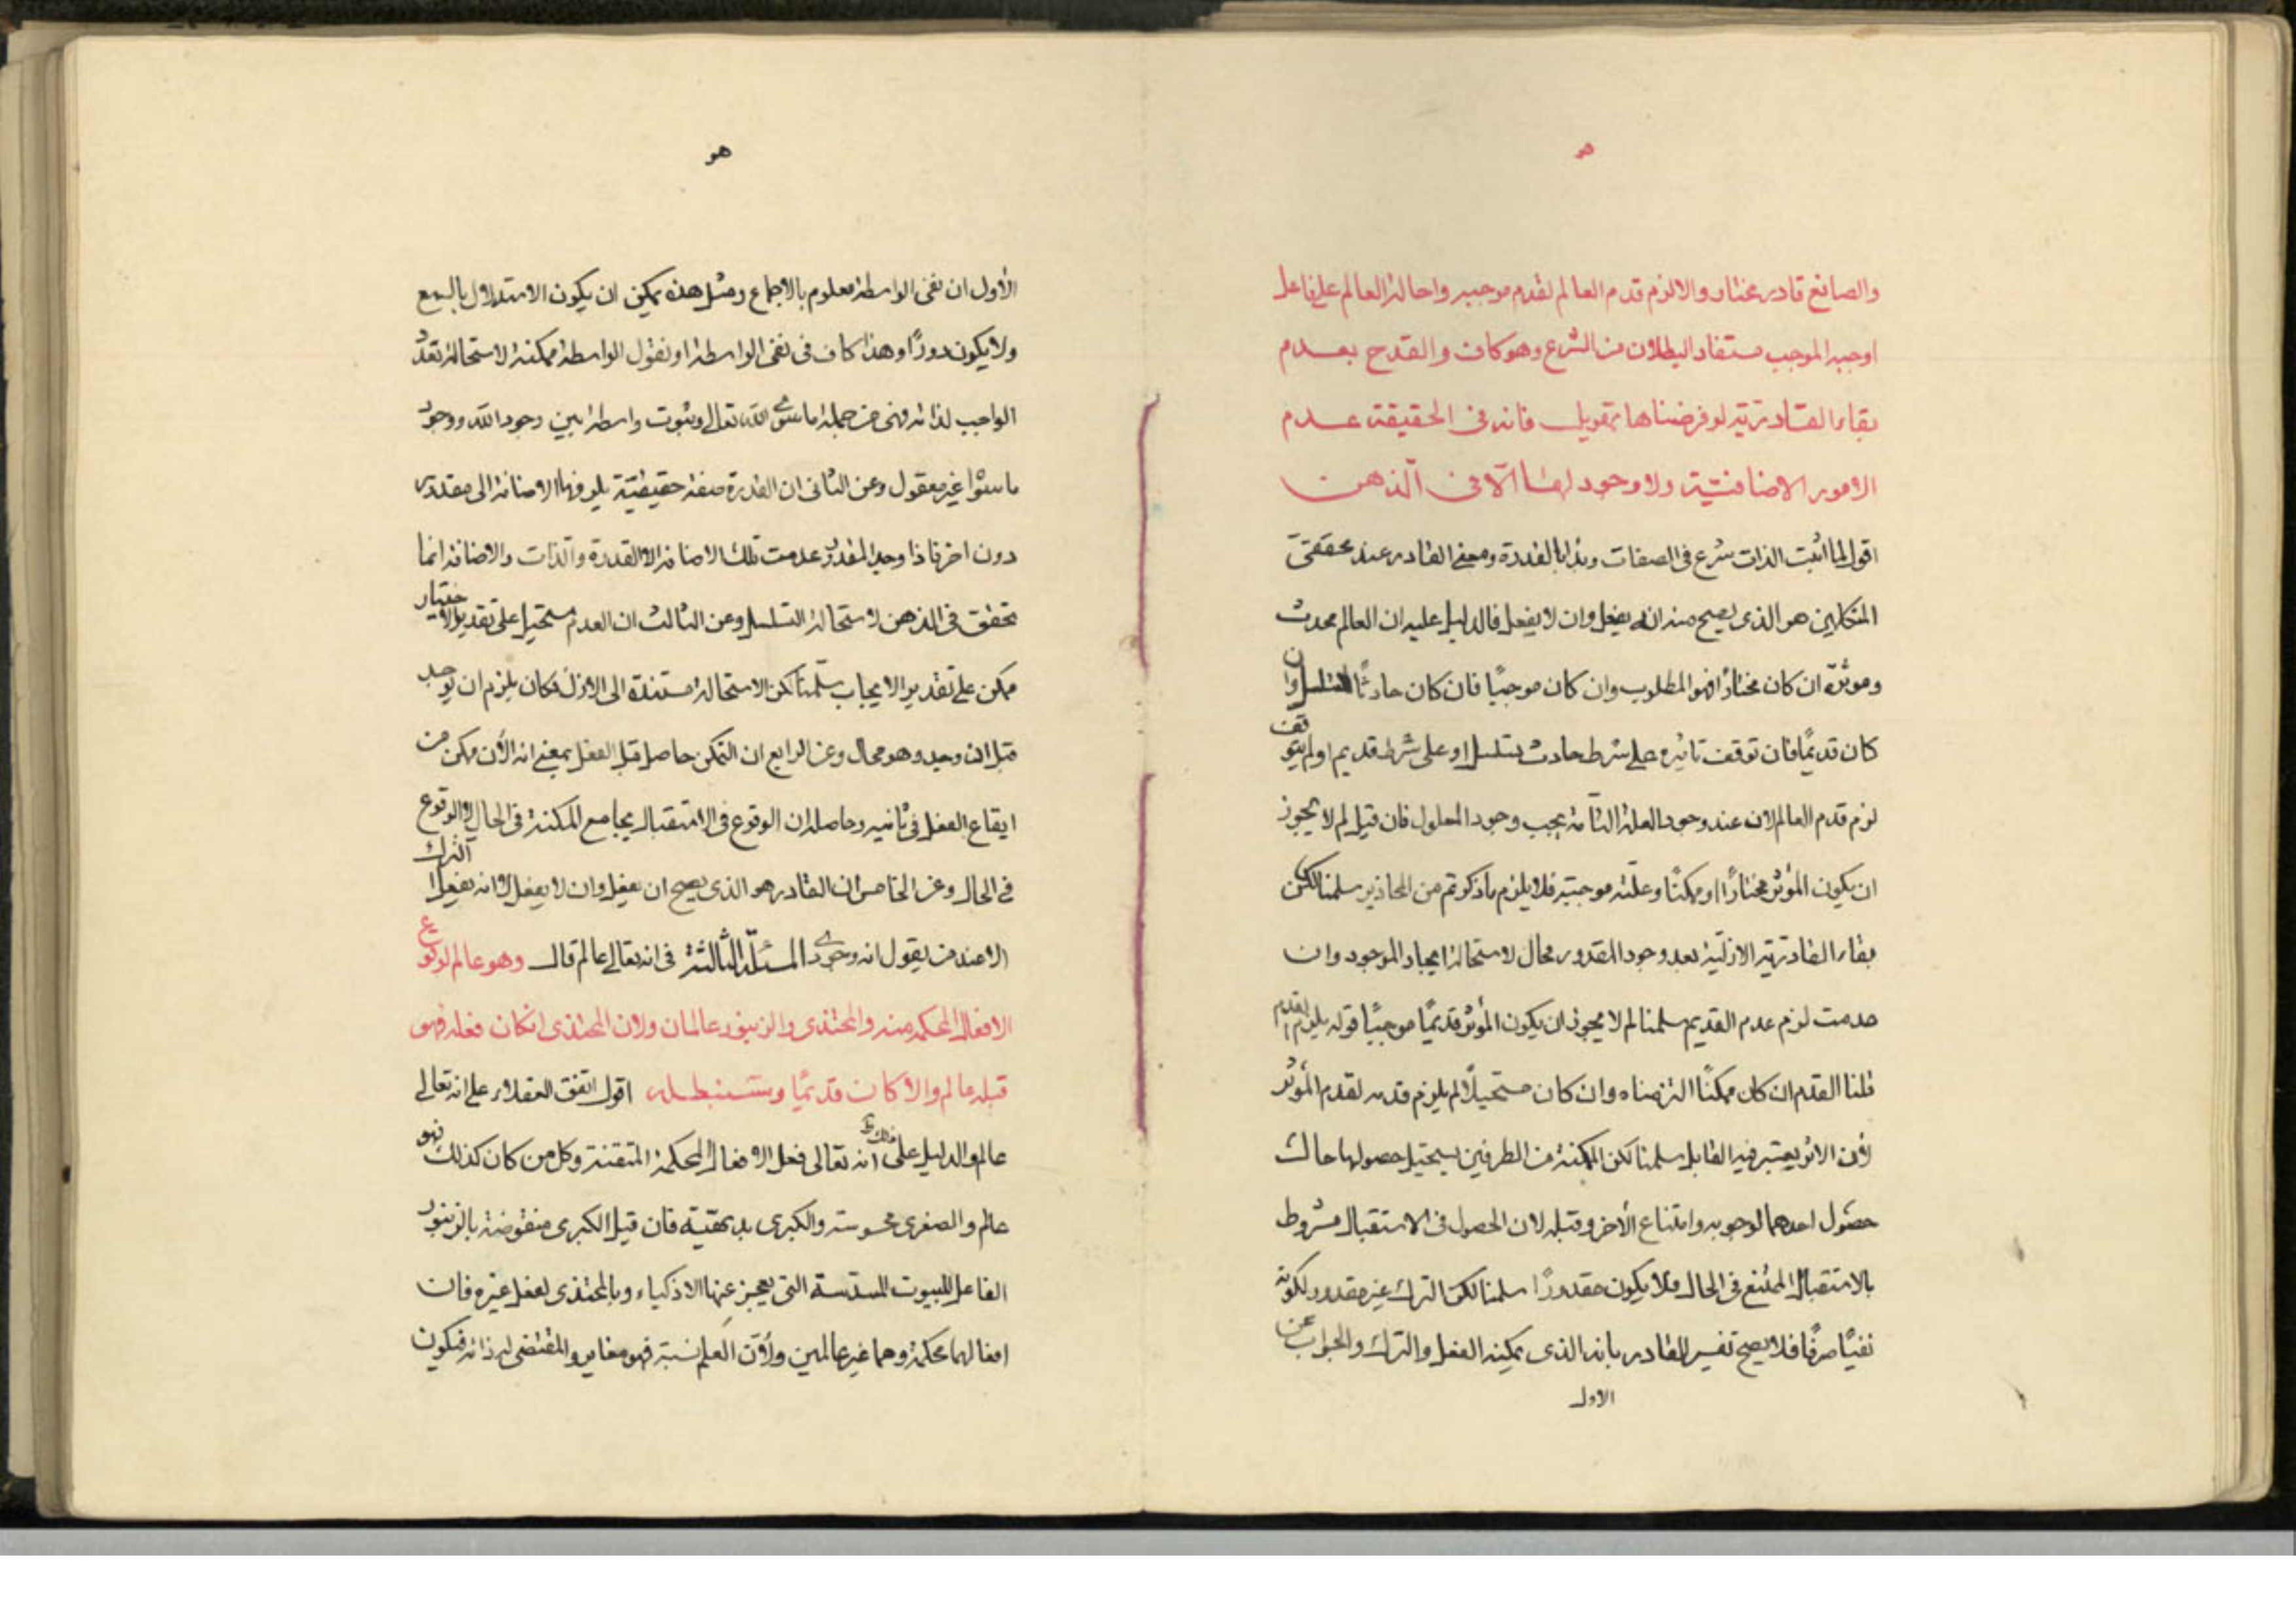 هو
والصانع قادر مختار والا لزم قدم العالم لقدم موجبه واحالة العالم على فاعل
اوجبه الموجب مستفاد البطلان من الشرع وهو كاف والقدح بعدم
بقاء القادرية لو فرضناها تهويل فانه فى الحقيقة عدم
الامور الاضافيّة ولا وجود لها الّا فى الّذهن
اقول لما اثبت الذات شرع فى الصفات وبدا بالقدرة ومعنى القادر عند محققى
المتكلمين هو الذى يصح منه ان يفعل وان لا يفعل فالدليل عليه ان العالم محدث
وموثره ان كان مختارًا فهو المطلوب وان كان موجبًا فان كان حادثًا تسلسل وان
كان قديمًا فان توقف تاثيره على شرط حادث تسلسل او على شرط قديم او لم يتوقف
لزم قدم العالم لان عند وجود العلة التامّة يجب وجود المعلول فان قيل لم لا يجوز
ان يكون المؤثر مختارًا او ممكنًا وعلّته موجبته فلا يلزم ما ذكرتم من المحاذير سلمنا لكن
بقاء القادريّة الازليّة بعد وجود المقدور محال لاستحالة ايجاد الموجود وان
عدمت لزم عدم القديم سلمنا لم لا يجوز ان يكون المؤثر قديمًا موجبًا قوله يلزم القدم
قلنا القدم ان كان ممكنًا التزمناه وان كان مستحيلًا لم يلزم قدمه لقدم المؤثر
لأن الاثر يعتبر فيه القابل سلمنا لكن المكنة من الطرفين يستحيل حصولها حالت
حصول احدهما لوجوبه وامتناع الأخر وقبله لان الحصول فى الاستقبال مشروط
بالاستقبال الممتنع فى الحال فلا يكون مقدورًا سلمنا لكن الترك غير مقدور لكونه
نفيًا صرفًا فلا يصح تفسير القادر بانه الذى يمكنه الفعل والترك والجواب عن
الاول
هو
الأول ان نفى الواسطة معلوم بالاجماع ومثل هذه يمكن ان يكون الاستدلال بالسمع
ولا يكون دورًا وهذا كاف فى نفى الواسطة او نقول الواسطة ممكنة لاستحالة تعدّد
الواجب لذاته فهى من جملة ما سوى الله تعالى وثبوت واسطة بين وجود الله ووجود
ما سواه غير معقول وعن الثانى ان القدرة صفة حقيقيّة يلزمها الاضافة الى مقدور
دون اخر فاذا وجد المقدور عدمت تلك الاضافة لا القدرة والّذات والاضافة انما
تحقق فى الذهن لاستحالة التسلسل وعن الثالث ان العدم مستحيل على تقدير الاختيار
ممكن على تقدير الايجاب سلّمنا لكن الاستحالة مستندة الى الازل فكان يلزم ان يوجد
قبل ان وجد وهو محال وعن الرابع ان التمكن حاصل قبل الفعل بمعنى انه الأن ممكن من
ايقاع الفعل فى ثانيه وحاصله ان الوقوع فى الاستقبال يجامع المكنة فى الحال لا الوقوع
فى الحال وعن الخامس ان القادر هو الذى يصح ان يفعل وان لا يفعل لا انه يفعل الترك
الا عند من يقول انه وجودى المسئلة الثالثة فى انه تعالى عالم قال وهو عالم لوقوع
الافعال المحكمة منه والمحتذى والزنبور عالمان ولان المحتذى ان كان فعله فهو
قبله عالم والا كان قديمًا وستسنبطله اقول اتفق العقلاء على انه تعالى
عالم والدليل على ذلك ظ انه تعالى فعل الافعال المحكمة المتقنة وكل من كان كذلك فهو
عالم والصغرى محسوسة والكبرى بديهيّة فان قيل الكبرى منقوضة بالزنبور
الفاعل للبيوت المسدّسة التى يعجز عنها الاذكياء وبالمحتذى لفعل غيره فان
افعالهما محكمة وهما غير عالمين ولأنّ العلم نسبة فهو مغاير والمقتضى له ذاته فيكون